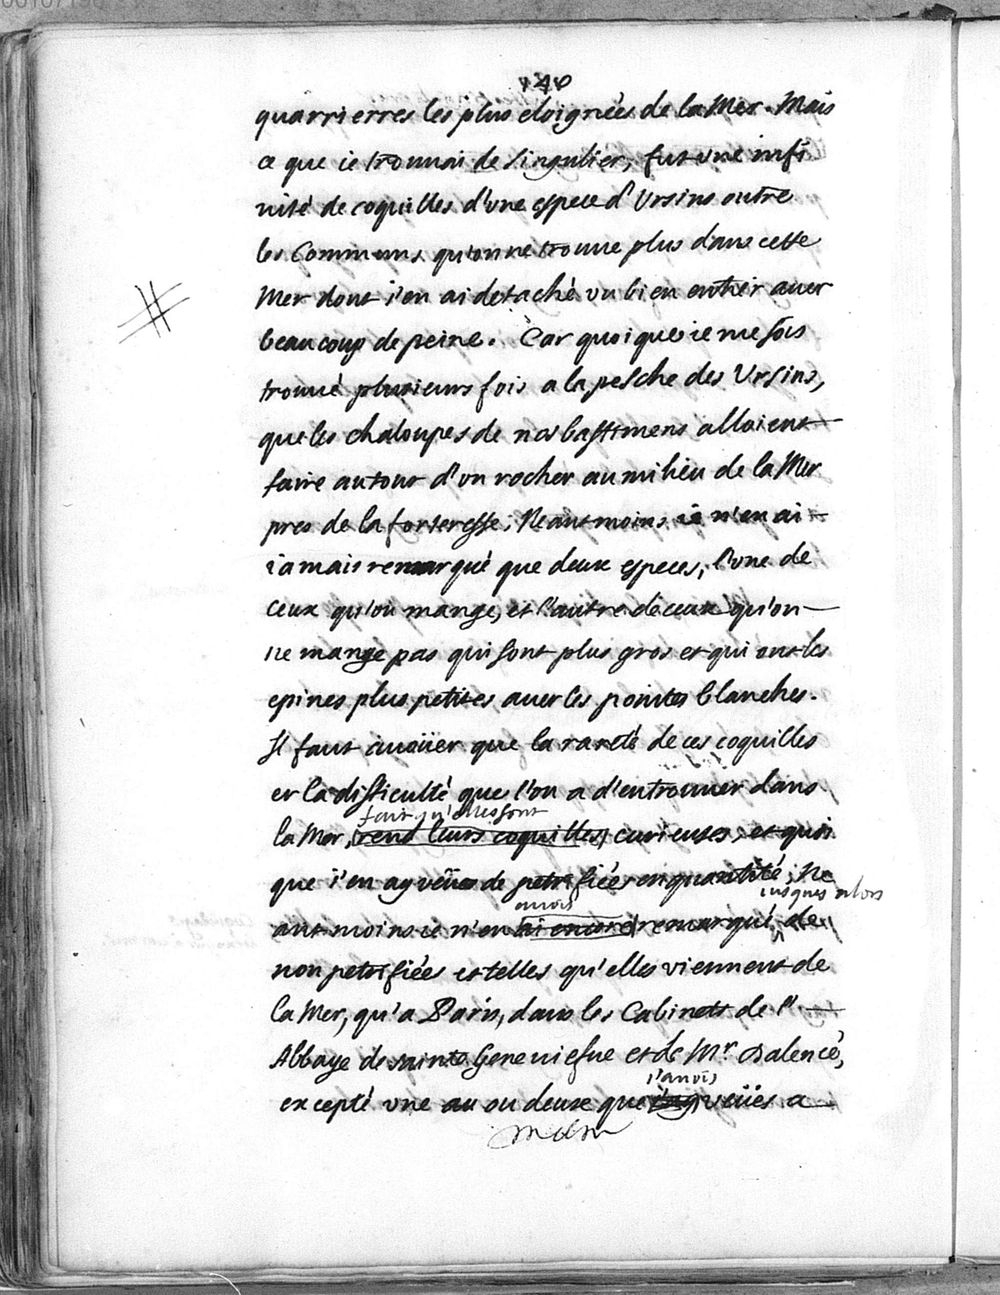 140
quarrierres les plus eloignées de la Mer. Mais
ce que ie trouuai de singulier, fut vne infi
nité de coquilles d'vne espece d'Vrsins outre
les Communs qu'on ne trouue plus dans cette
Mer dont i'en ai detaché vn bien entier auec
beaucoup de peine. Car quoique ie me sois
trouué plusieurs fois a la pesche des Vrsins,
que les chaloupes de nos bastimens alloient
faire autour d'vn rocher au milieu de la Mer
pres de la forteresse; Neantmoins ie n'en ai
iamais remarqué que deux especes, l'vne de
ceux qu'on mange, et l'autre de ceux qu'on
ne mange pas qui sont plus gros et qui ont les
epines plus petites auec les pointes blanches.
Il faut auoüer que la rareté de ces coquilles
et la difficulté que l'on a d'en trouuer dans
fait qu'elles sont
la Mer, rend leurs coquilles curieuses, et quoi
que i'en ay veües de petrifiées en quantité; Ne
auois iusques alors
antmoins ie n'en ai encore remarqué, de
non petrifiées et telles qu'elles viennent de
la Mer, qu'a Paris, dans les Cabinets de l'
Abbaye de sainte Geneuiefue et de Mr. Dalencé,
i'auois
excepté vne au ou deux que i'ay veües a